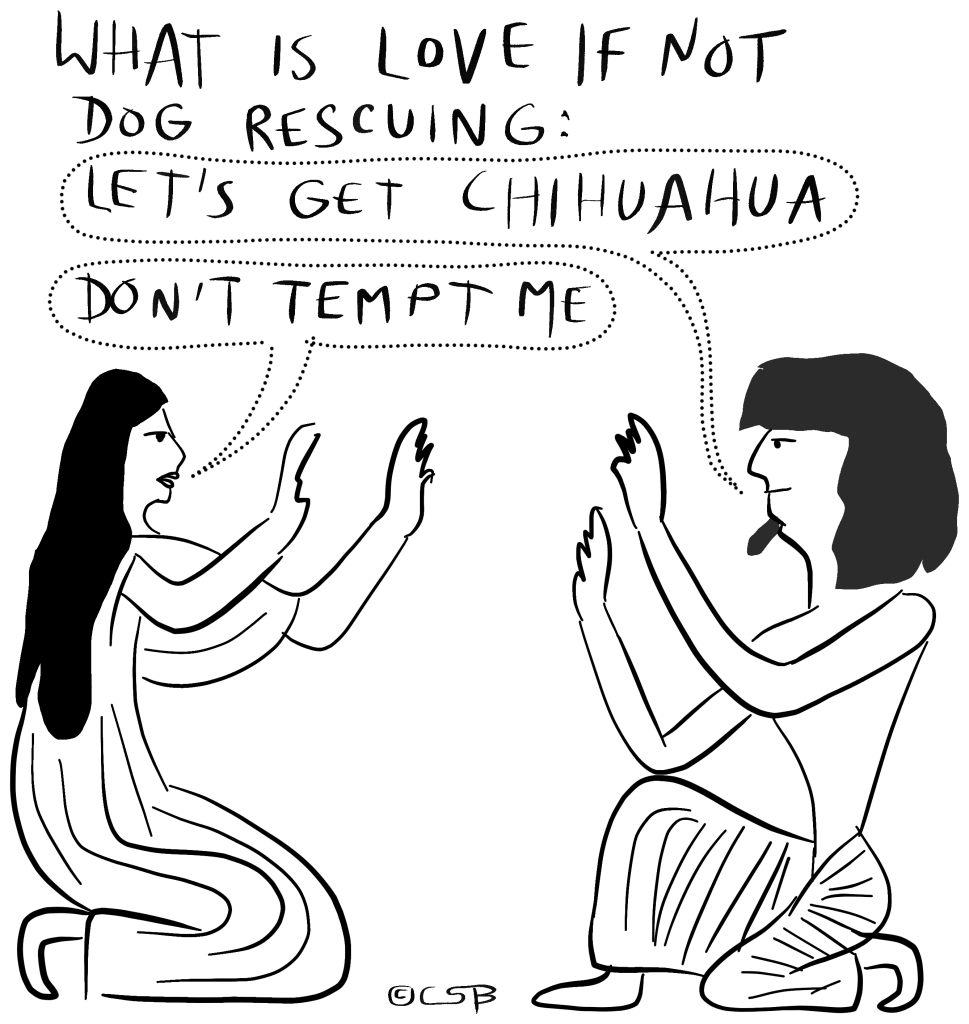 WHAT IS LOVE IF NOT
DOG RESCUING:
LET'S GET CHIHUAHUA
DON'T TEMPT ME
©CSB